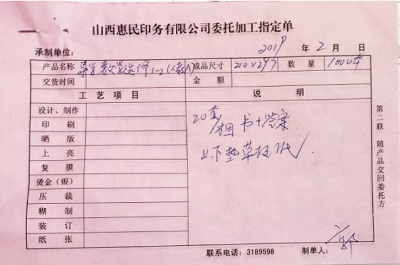 山西惠民印务有限公司委托加工指定单
承制单位： 2019年 2月 日
产品名称 成品尺寸 210×297 数量 1000本
交货时间 金额
工艺项目 说明
设计、制作
印刷 20套/捆 书+答案
晒版
上亮 上下垫草板纸
复膜
烫金（银）
压裁
糊制
装订
纸张
第二联 随产品交回委托方
联系电话：3189598 制单人：